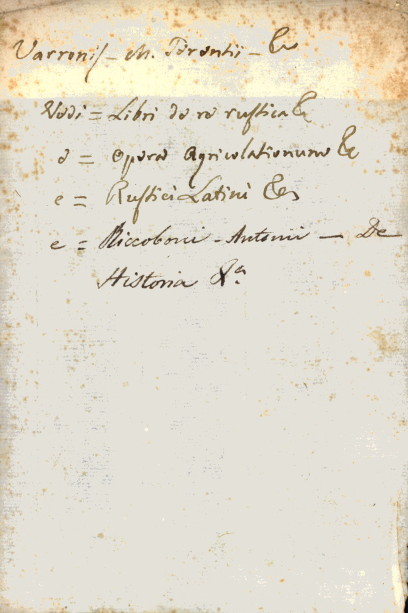 Varronis - M. Terentii - &c
Vedi = Libri de re rustica &c
e = Opera Agricolationum &c
e = Rustici Latini &c
e = Riccoboni - Antonii - De
Historia &a